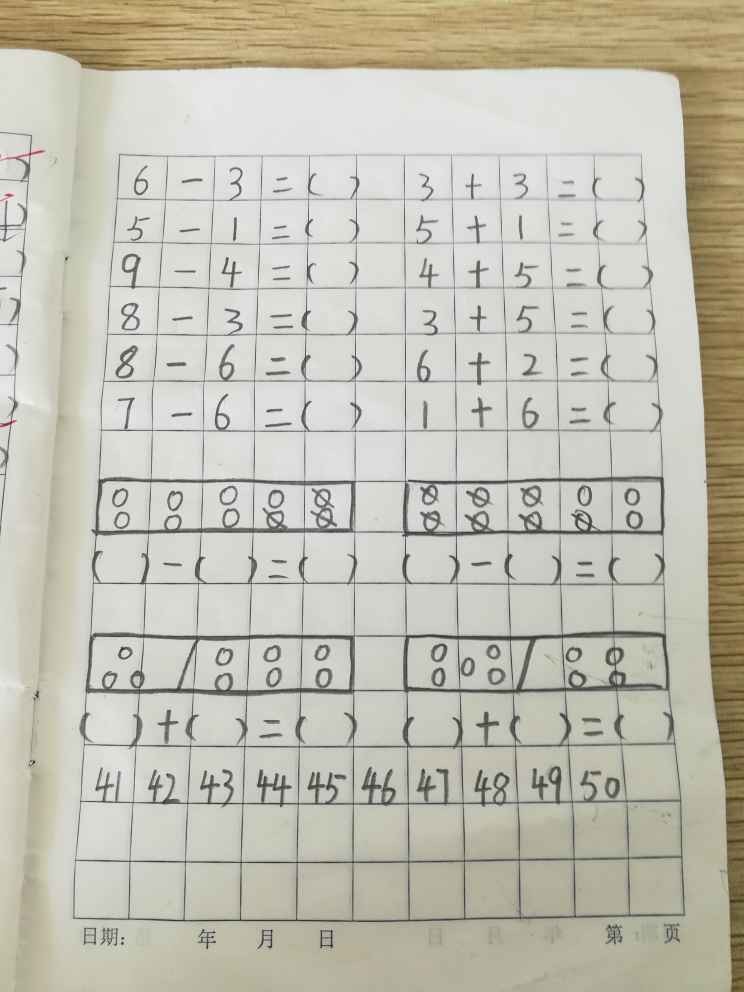 6 - 3 = ( ) 3 + 3 = ( )
5 - 1 = ( ) 5 + 1 = ( )
9 - 4 = ( ) 4 + 5 = ( )
8 - 3 = ( ) 3 + 5 = ( )
8 - 6 = ( ) 6 + 2 = ( )
7 - 6 = ( ) 1 + 6 = ( )
( ) - ( ) = ( ) ( ) - ( ) = ( )
( ) + ( ) = ( ) ( ) + ( ) = ( )
41 42 43 44 45 46 47 48 49 50
日期: 年 月 日 第 页